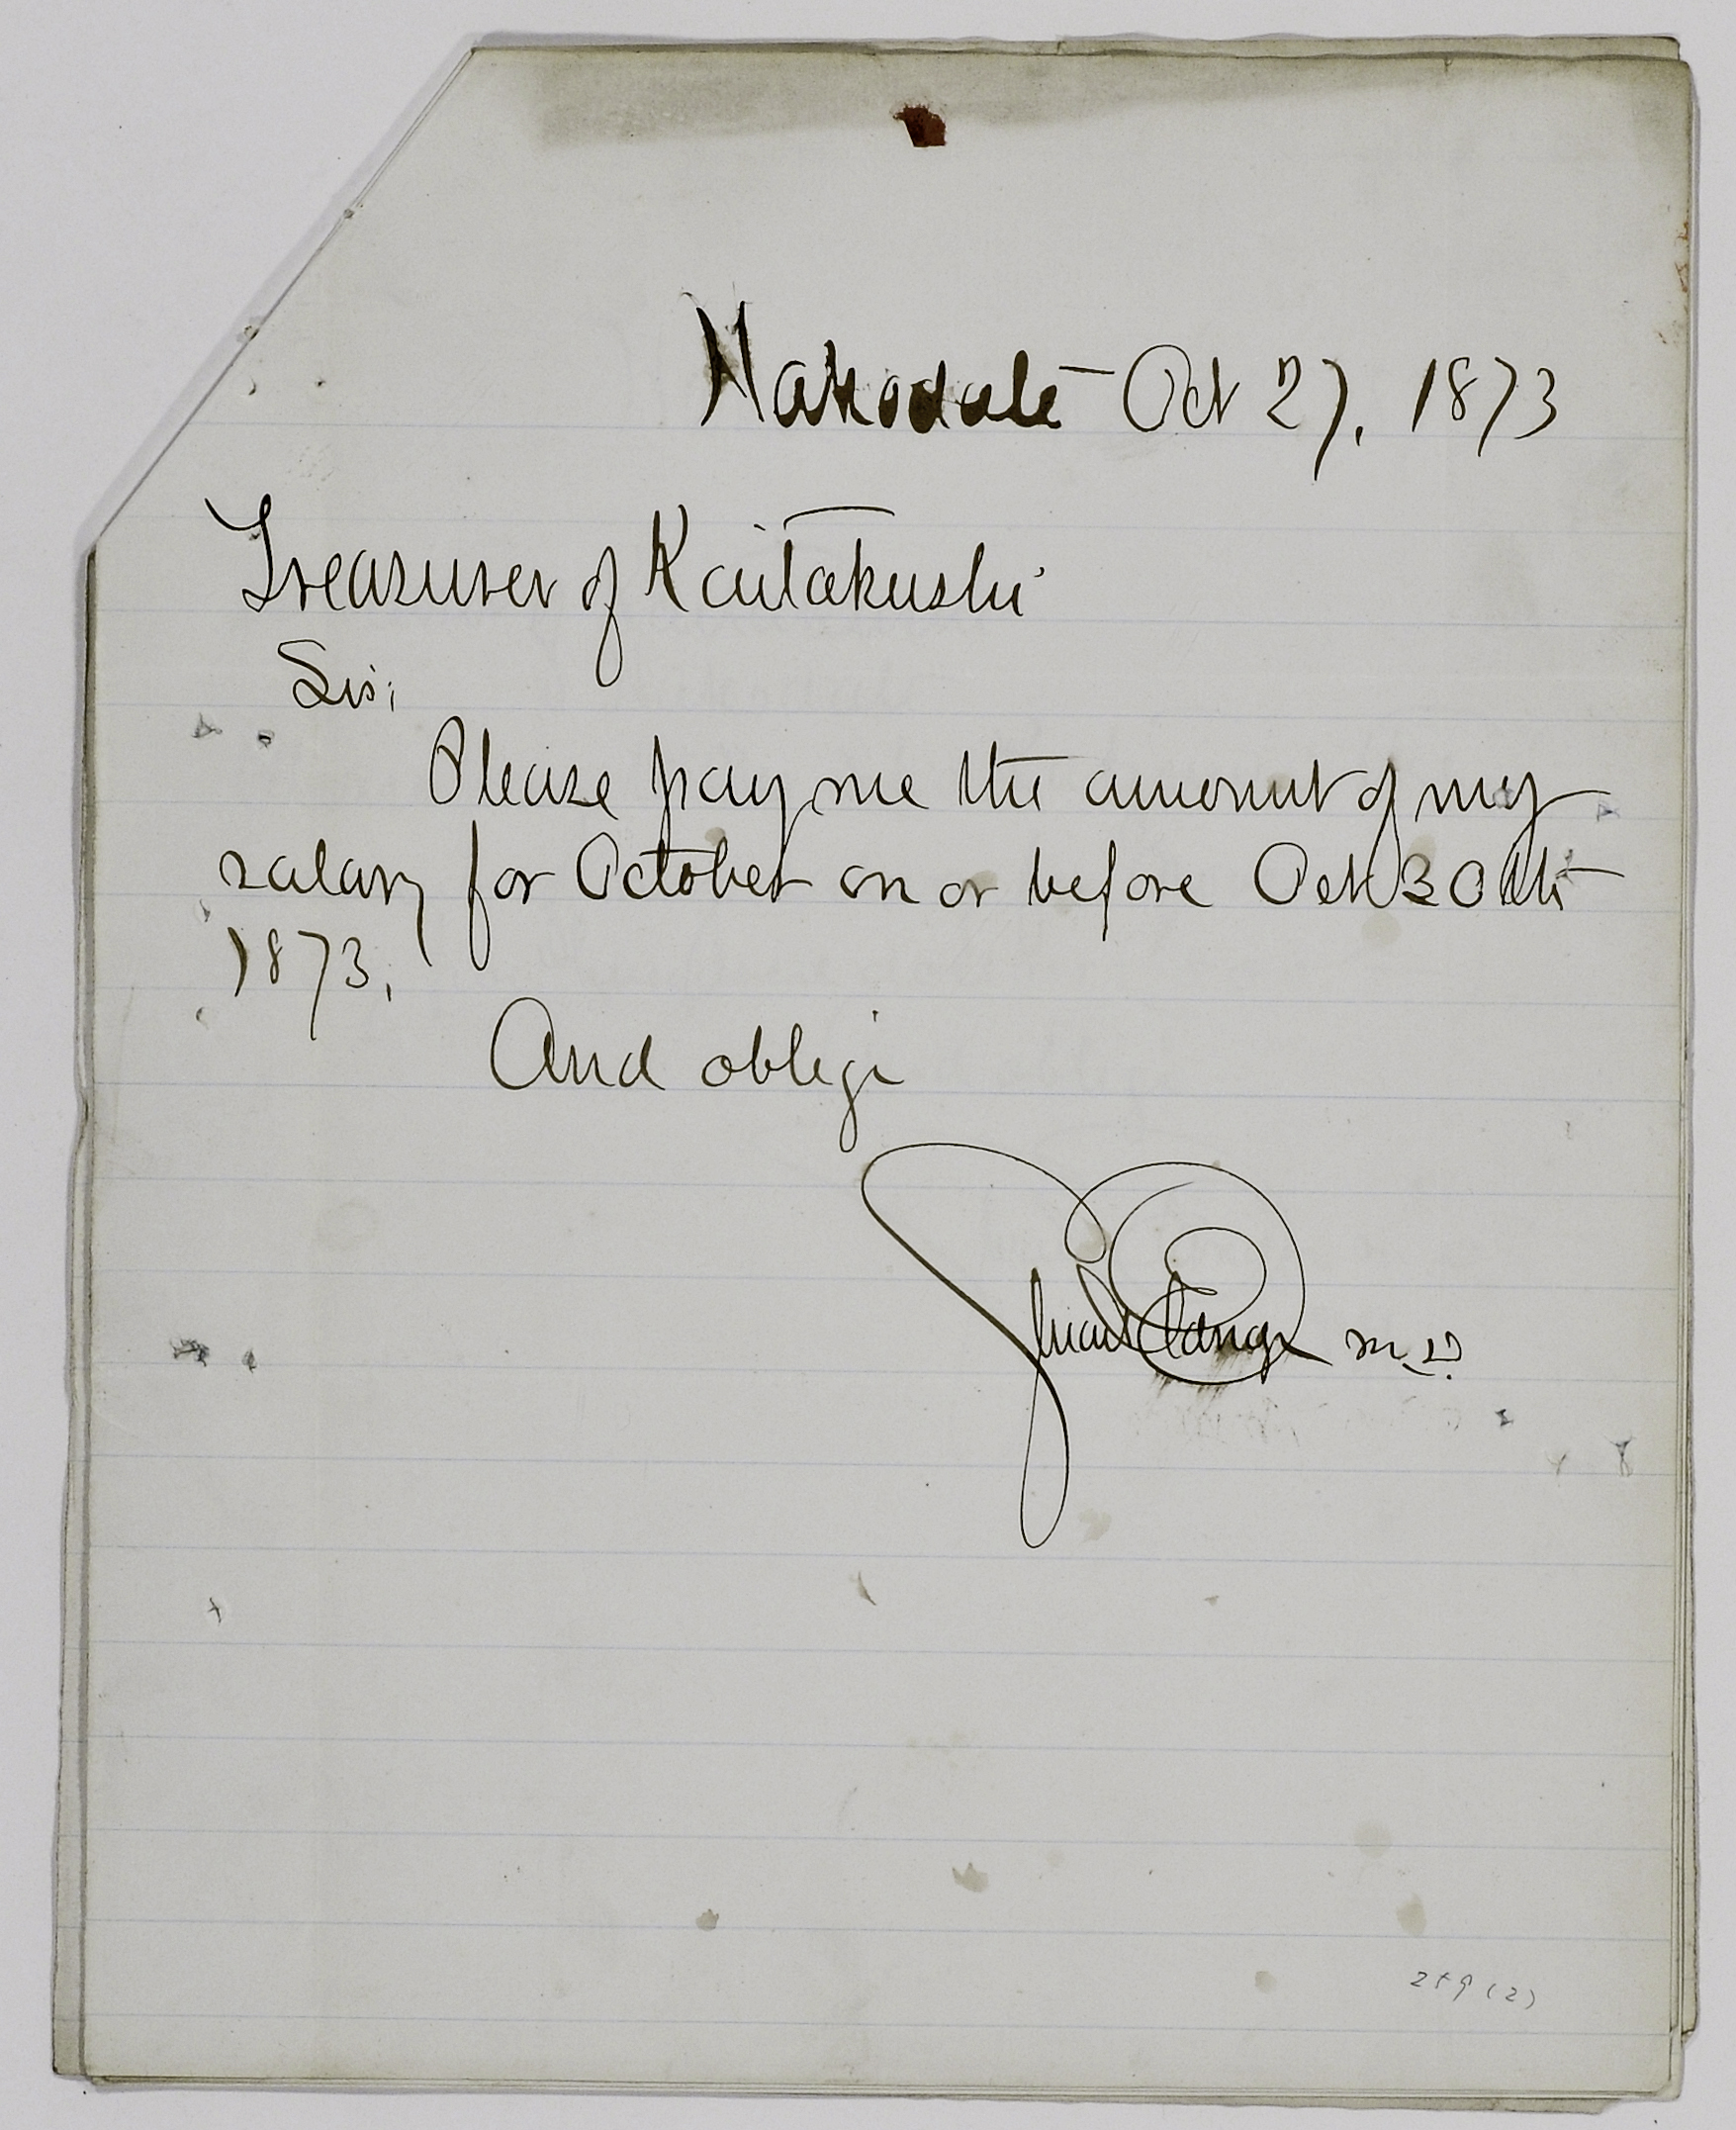 Hakodate Oct 27, 1873
Treasurer of Kaitakushi
Sir;
Please pay me the amount of my
salary for October on or before Oct 30th
1873.
And oblige
Stuart Eldridge M.D.
259 (2)